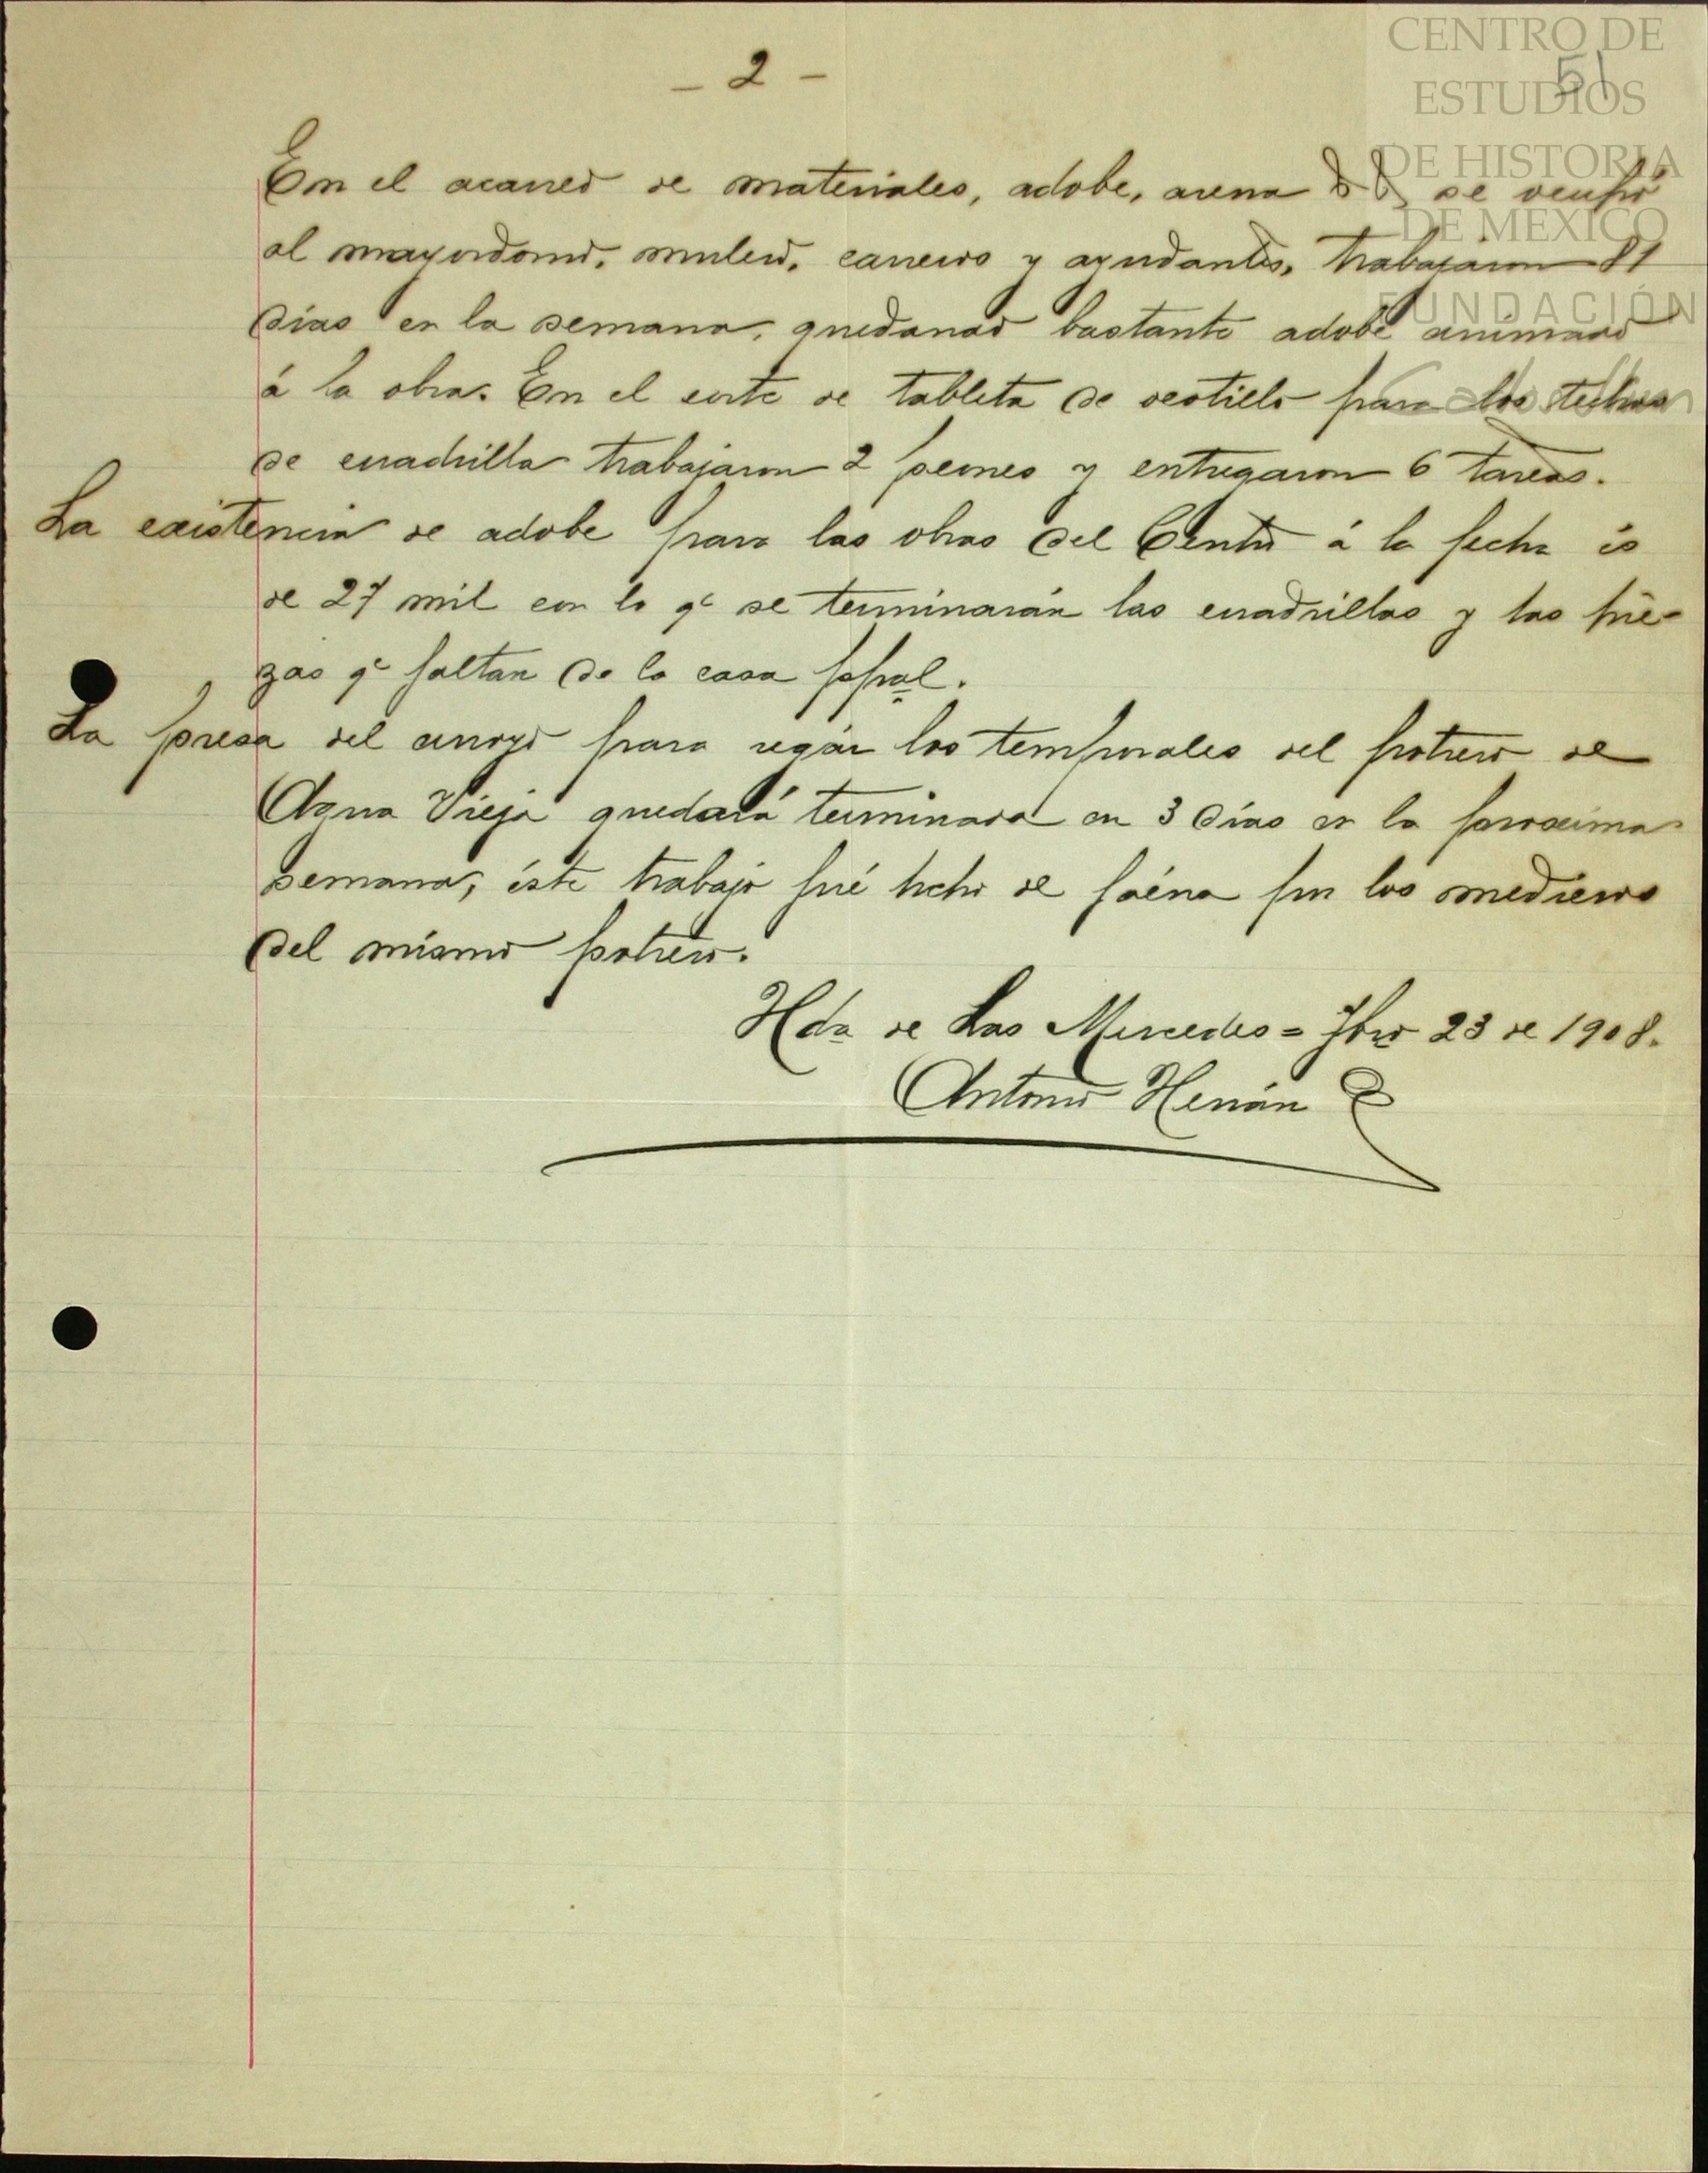 - 2 -
51
CENTRO DE
ESTUDIOS
DE HISTORIA
DE MEXICO
FUNDACIÓN
En el acarreo de materiales, adobe, arena & & se ocupó
al mayordomo, mulero, carrero y ayudantes, trabajaron 81
dias en la semana, quedando bastante adobe arrimado
á la obra. En el corte de tableta de para los techos
de cuadrilla trabajaron 2 peones y entregaron 6 tareas.
La existencia de adobe para las obras del Centro á la fecha és
de 27 mil con lo qe se terminarán las cuadrillas y las pie-
zas qe faltan de la casa pral.
La presa del arroyo para regár los temporales del potrero de
Agua Vieja quedará terminada en 3 dias en la proxima
semana, éste trabajo fué hecho de faéna por los medieros
del mismo potrero.
Hda de Las Mercedes = 7bre 23 de 1908.
Antonio Herrán